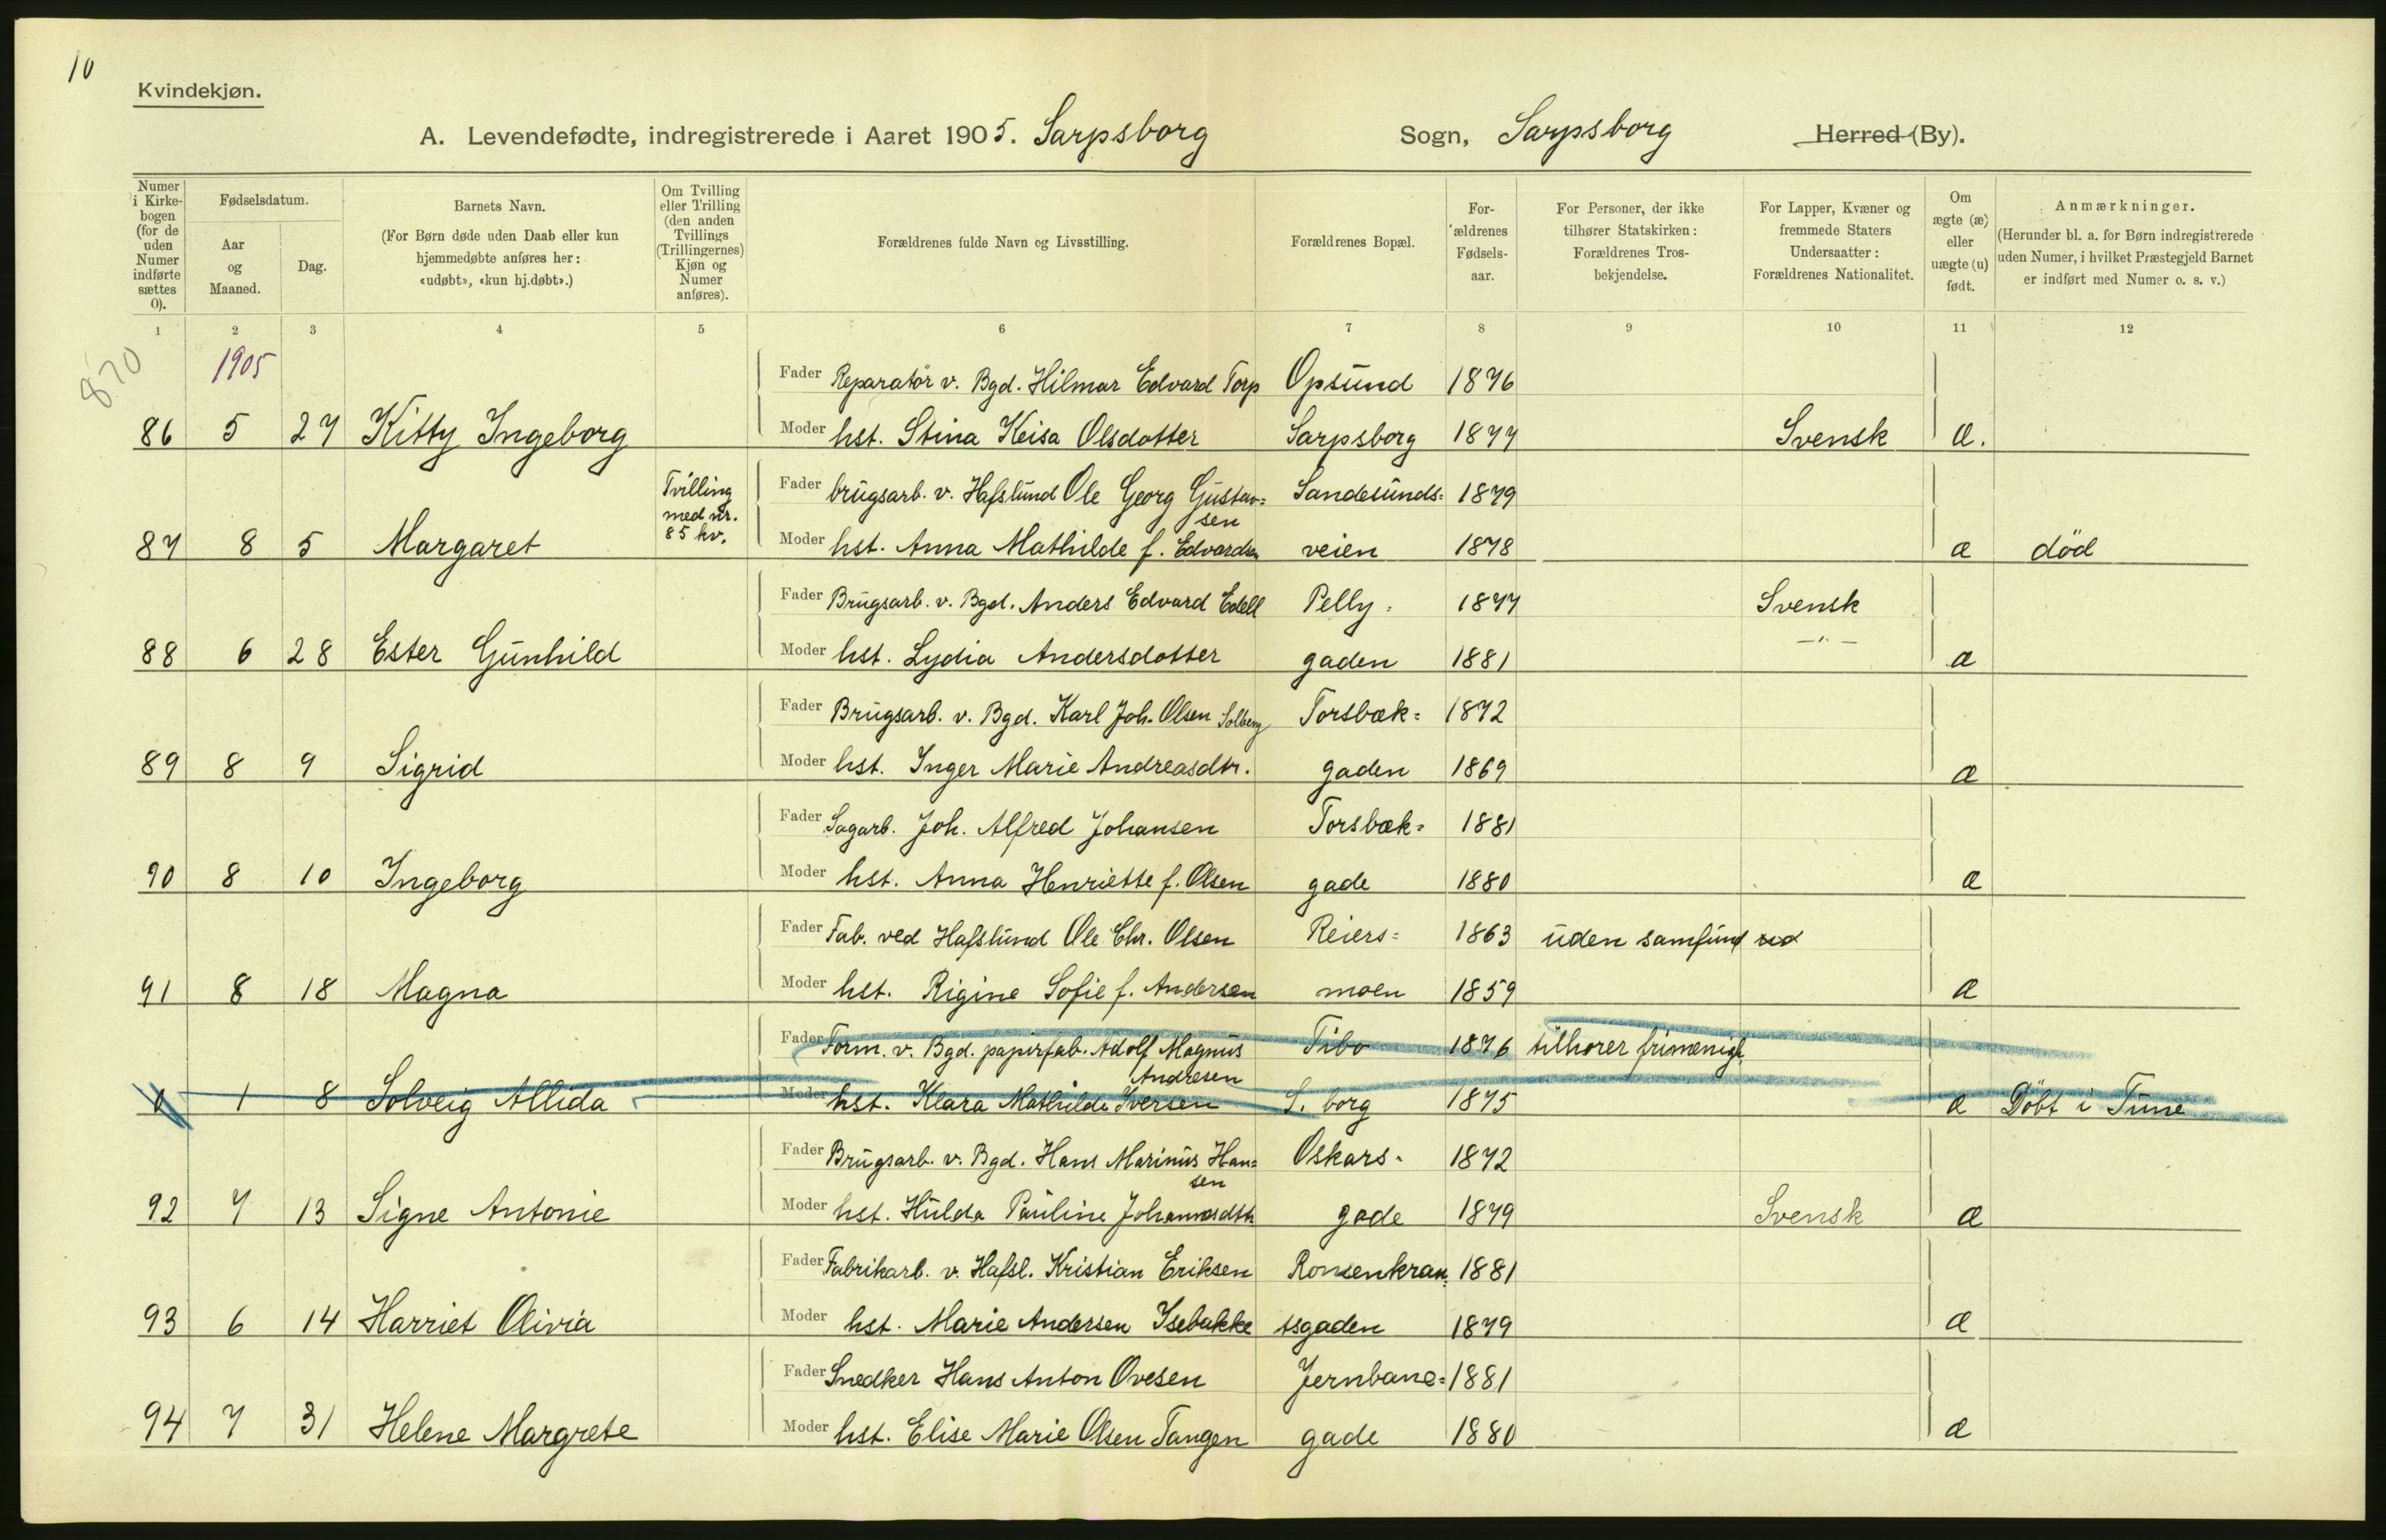 10
Kvindekjøn.
A. Levendefødte, indregistrerede i Aaret 1905. Sarpsborg Sogn, Sarpsborg Herred (By).
Numer i Kirkebogen (for de uden Numer indførte sættes 0).
Fødselsdatum.
Aar og Maaned.
Dag.
Barnets Navn.
(For Børn døde uden Daab eller kun hjemmedøbte anføres her: «udøbt», «kun hj.døbt».)
Om Tvilling eller Trilling (den anden Tvillings (Trillingernes) Kjøn og Numer anføres).
Forældrenes fulde Navn og Livsstilling.
Forældrenes Bopæl.
Forældrenes Fødselsaar.
For Personer, der ikke tilhører Statskirken: Forældrenes Trosbekjendelse.
For Lapper, Kvæner og fremmede Staters Undersaatter: Forældrenes Nationalitet.
Om ægte (æ) eller uægte (u) født.
Anmærkninger.
(Herunder bl. a. for Børn indregistrerede uden Numer, i hvilket Præstegjeld Barnet er indført med Numer o. s. v.)
1 2 3 4 5 6 7 8 9 10 11 12
870 1905
Fader Reparatör v. Bgd. Hilmar Edvard Torp Opsund 1876
86 5 27 Kitty Ingeborg Moder hst. Stina Keisa Olsdotter Sarpsborg 1877 Svensk Æ.
Tvilling med nr. 85 kv. Fader brugsarb. v. Hafslund Ole Georg Gustav= Sandesunds= 1879
sen
87 8 5 Margaret Moder hst. Anna Mathilde f. Edvardsen veien 1878 æ död
Fader Brugsarb. v. Bgd. Anders Edvard Edell Pelly= 1877 Svensk
88 6 28 Ester Gunhild Moder hst. Lydia Andersdotter gaden 1881 —"— æ
Fader Brugsarb. v. Bgd. Karl Joh. Olsen Solberg Torsbæk= 1872
89 8 9 Sigrid Moder hst. Inger Marie Andreasdtr. gaden 1869 æ
Fader Sagarb. Joh. Alfred Johansen Torsbæk= 1881
90 8 10 Ingeborg Moder hst. Anna Henriette f. Olsen gade 1880 æ
Fader Fab. ved Hafslund Ole Chr. Olsen Reiers= 1863 uden samfund
91 8 18 Magna Moder hst. Rigine Sofie f. Andersen moen 1859 æ
Fader Form. v. Bgd. papirfab. Adolf Magnus Tibo 1876 tilhorer frimenigh.
Andresen
0 1 8 Solveig Allida Moder hst. Klara Mathilde Iversen S. borg 1875 æ Döbt i Tune
Fader Brugsarb. v. Bgd. Hans Marinus Han= Oskars= 1872
sen
92 7 13 Signe Antonie Moder hst. Hulda Pauline Johannesdtr gade 1879 Svensk æ
Fader Fabrikarb. v. Hafsl. Kristian Eriksen Ronsenkran= 1881
93 6 14 Harriet Olivia Moder hst. Marie Andersen Isebakke tsgaden 1879 æ
Fader Snedker Hans Anton Ovesen Jernbane= 1881
94 7 31 Helene Margrete Moder hst. Elise Marie Olsen Tangen gade 1880 æ